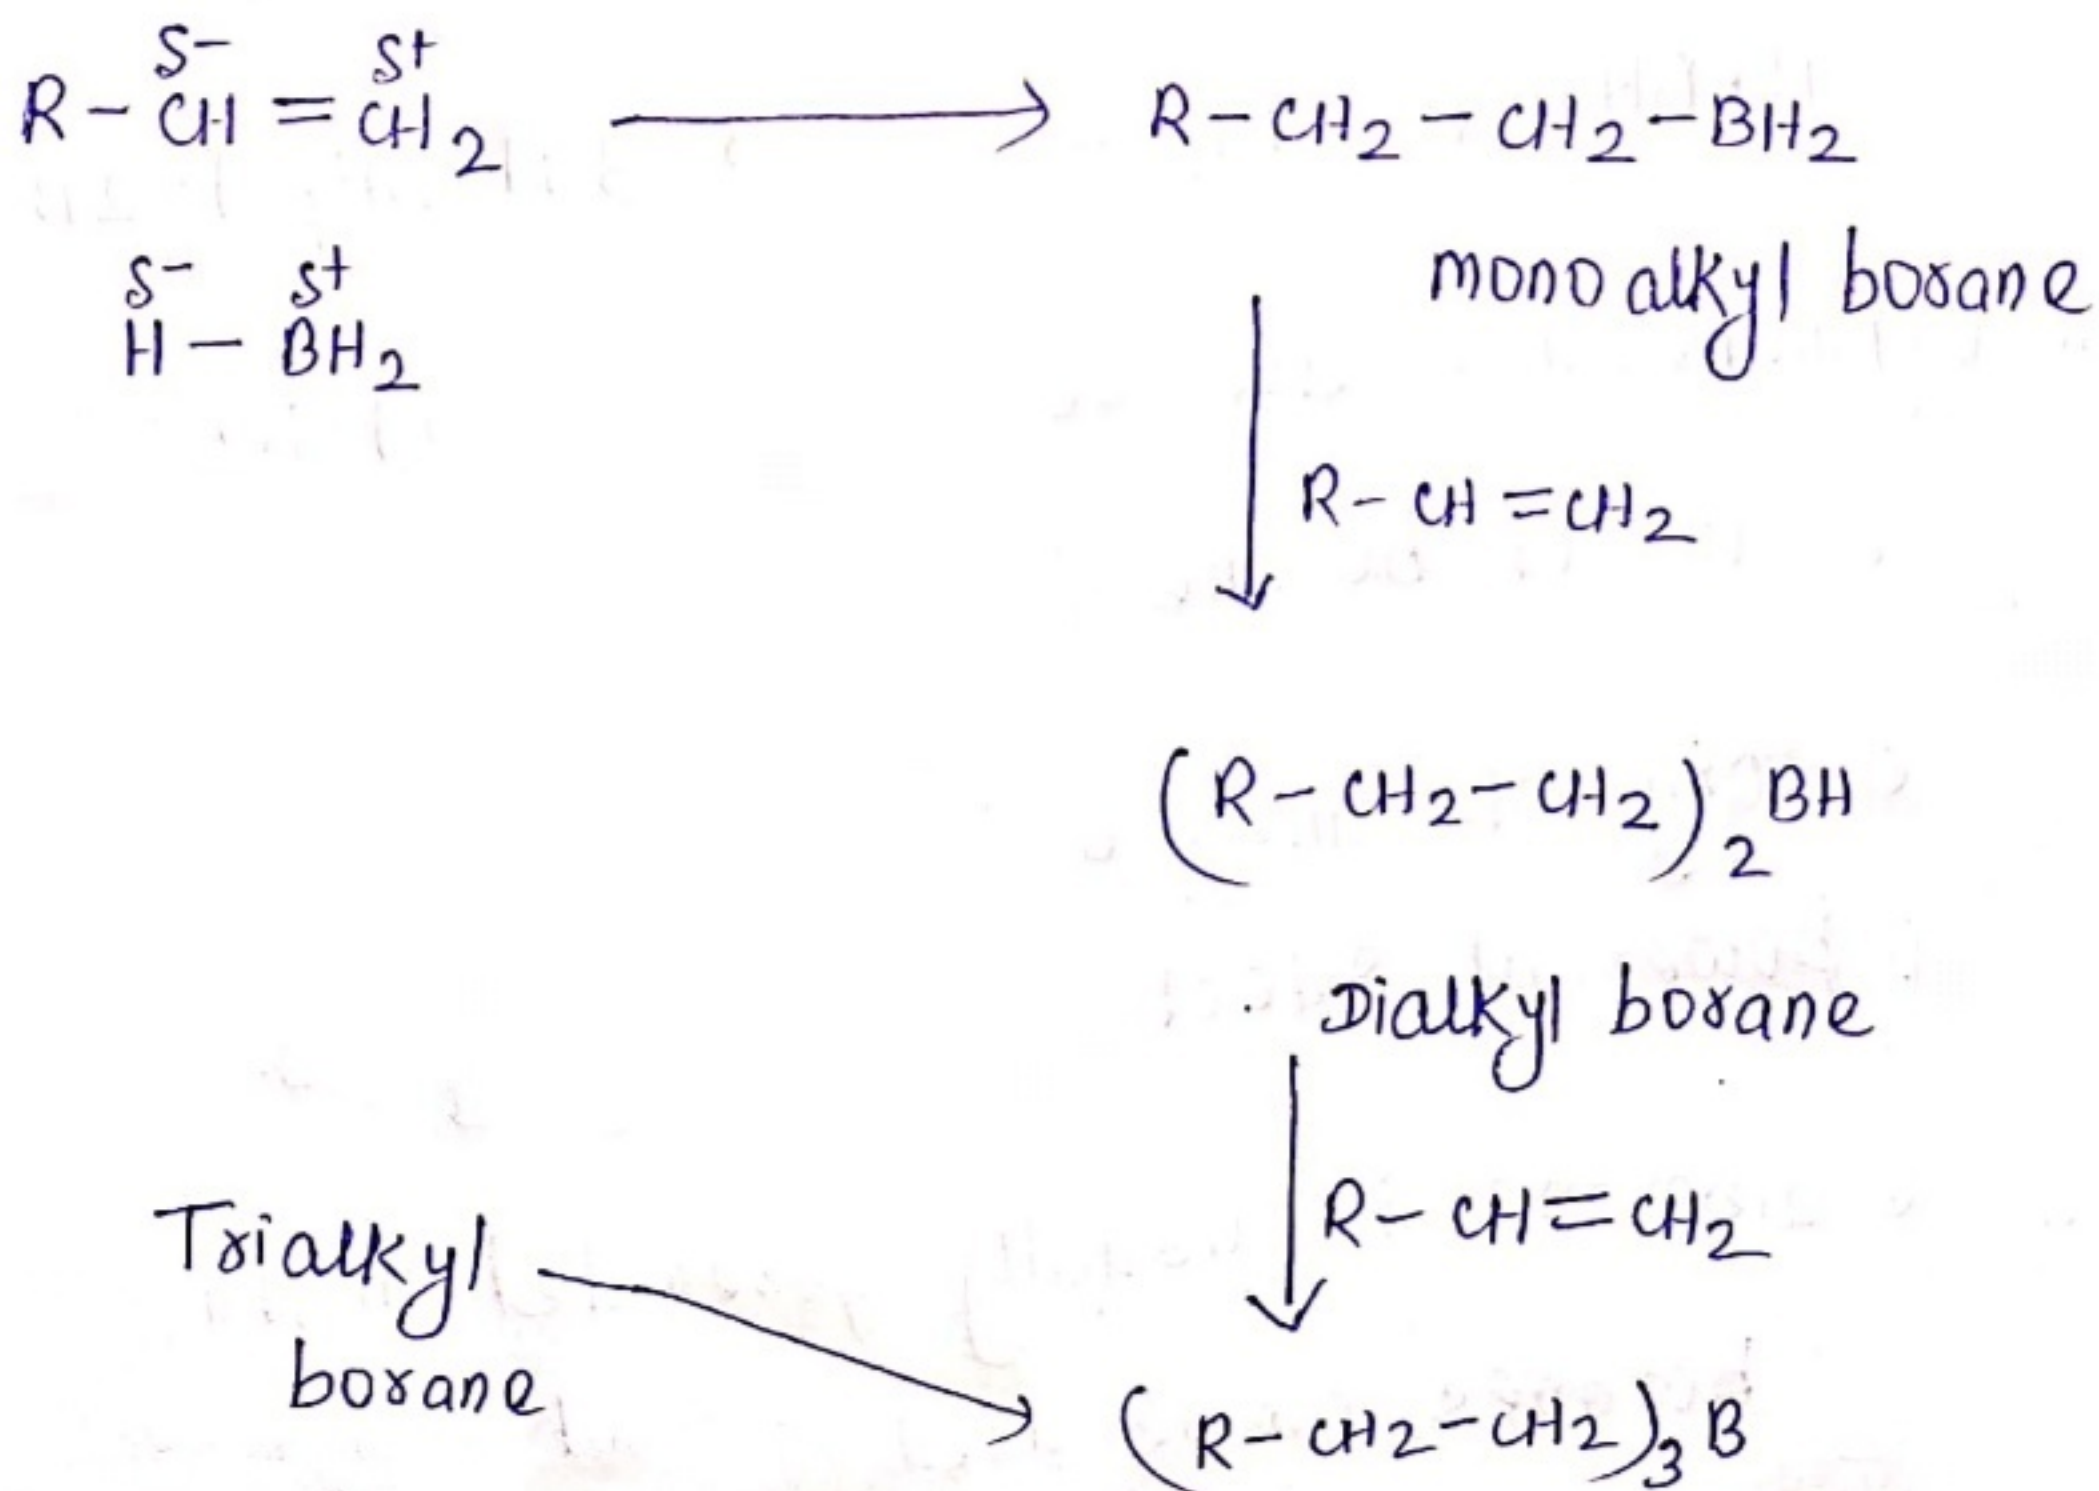 δ- δ+
R - CH = CH2 ⟶ R - CH2 - CH2 - BH2
mono alkyl borane
δ- δ+
H - BH2
R - CH = CH2
(R - CH2 - CH2)2 BH
Dialkyl borane
R - CH = CH2
Trialkyl
borane
(R - CH2 - CH2)3 B